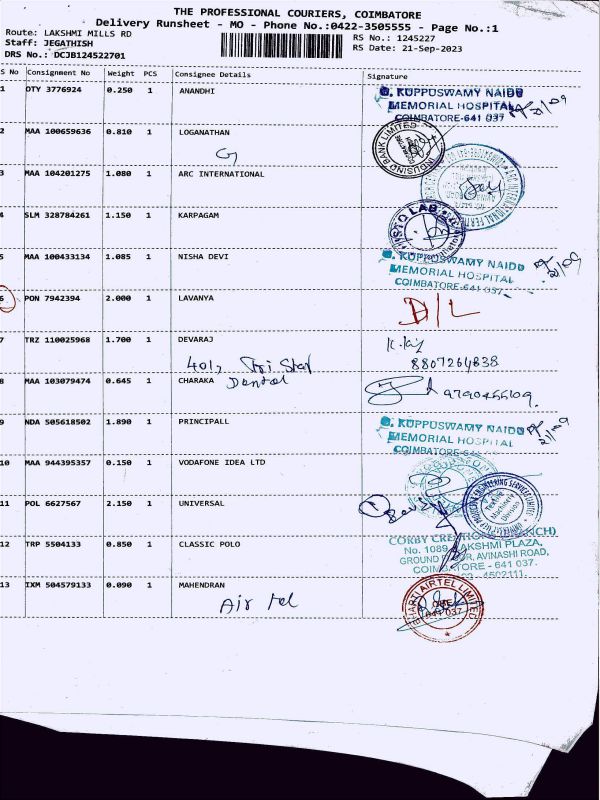 THE PROFESSIONAL COURIERS, COIMBATORE
Delivery Runsheet - MO - Phone No.:0422-3505555 - Page No.:1
Route: LAKSHMI MILLS RD
RS No.: 1245227
Staff: JEGATHISH
RS Date: 21-Sep-2023
DRS No.: DCJB124522701
S No Consignment No Weight PCS Consignee Details Signature
1 OTY 3776924 0.250 1 ANANDHI
G. KUPPUSWAMY NAIDU
MEMORIAL HOSPITAL
COIMBATORE-641 037
2 MAA 100659636 0.810 1 LOGANATHAN
G
INDUSIND BANK LIMITED
3 MAA 104201275 1.080 1 ARC INTERNATIONAL
4 SLM 328784261 1.150 1 KARPAGAM
LAB
5 MAA 100433134 1.085 1 NISHA DEVI
G. KUPPUSWAMY NAIDU
MEMORIAL HOSPITAL
COIMBATORE-641 037
6 PON 7942394 2.000 1 LAVANYA
D/L
7 TRZ 110025968 1.700 1 DEVARAJ
8807264838
401, Tri Star
8 MAA 103079474 0.645 1 CHARAKA Dental
9790455109
9 NDA 505618502 1.890 1 PRINCIPALL
G. KUPPUSWAMY NAIDU
MEMORIAL HOSPITAL
COIMBATORE-641
10 MAA 944395357 0.150 1 VODAFONE IDEA LTD
11 POL 6627567 2.150 1 UNIVERSAL
Textile
Machinery
Division
12 TRP 5504133 0.850 1 CLASSIC POLO
CORBY
No. 1089, LAKSHMI PLAZA,
GROUND FLOOR, AVINASHI ROAD,
COIMBATORE - 641 037.
4502111.
13 IXM 504579133 0.090 1 MAHENDRAN
Airtel
BHARTI AIRTEL LIMITED
CBE
641 037